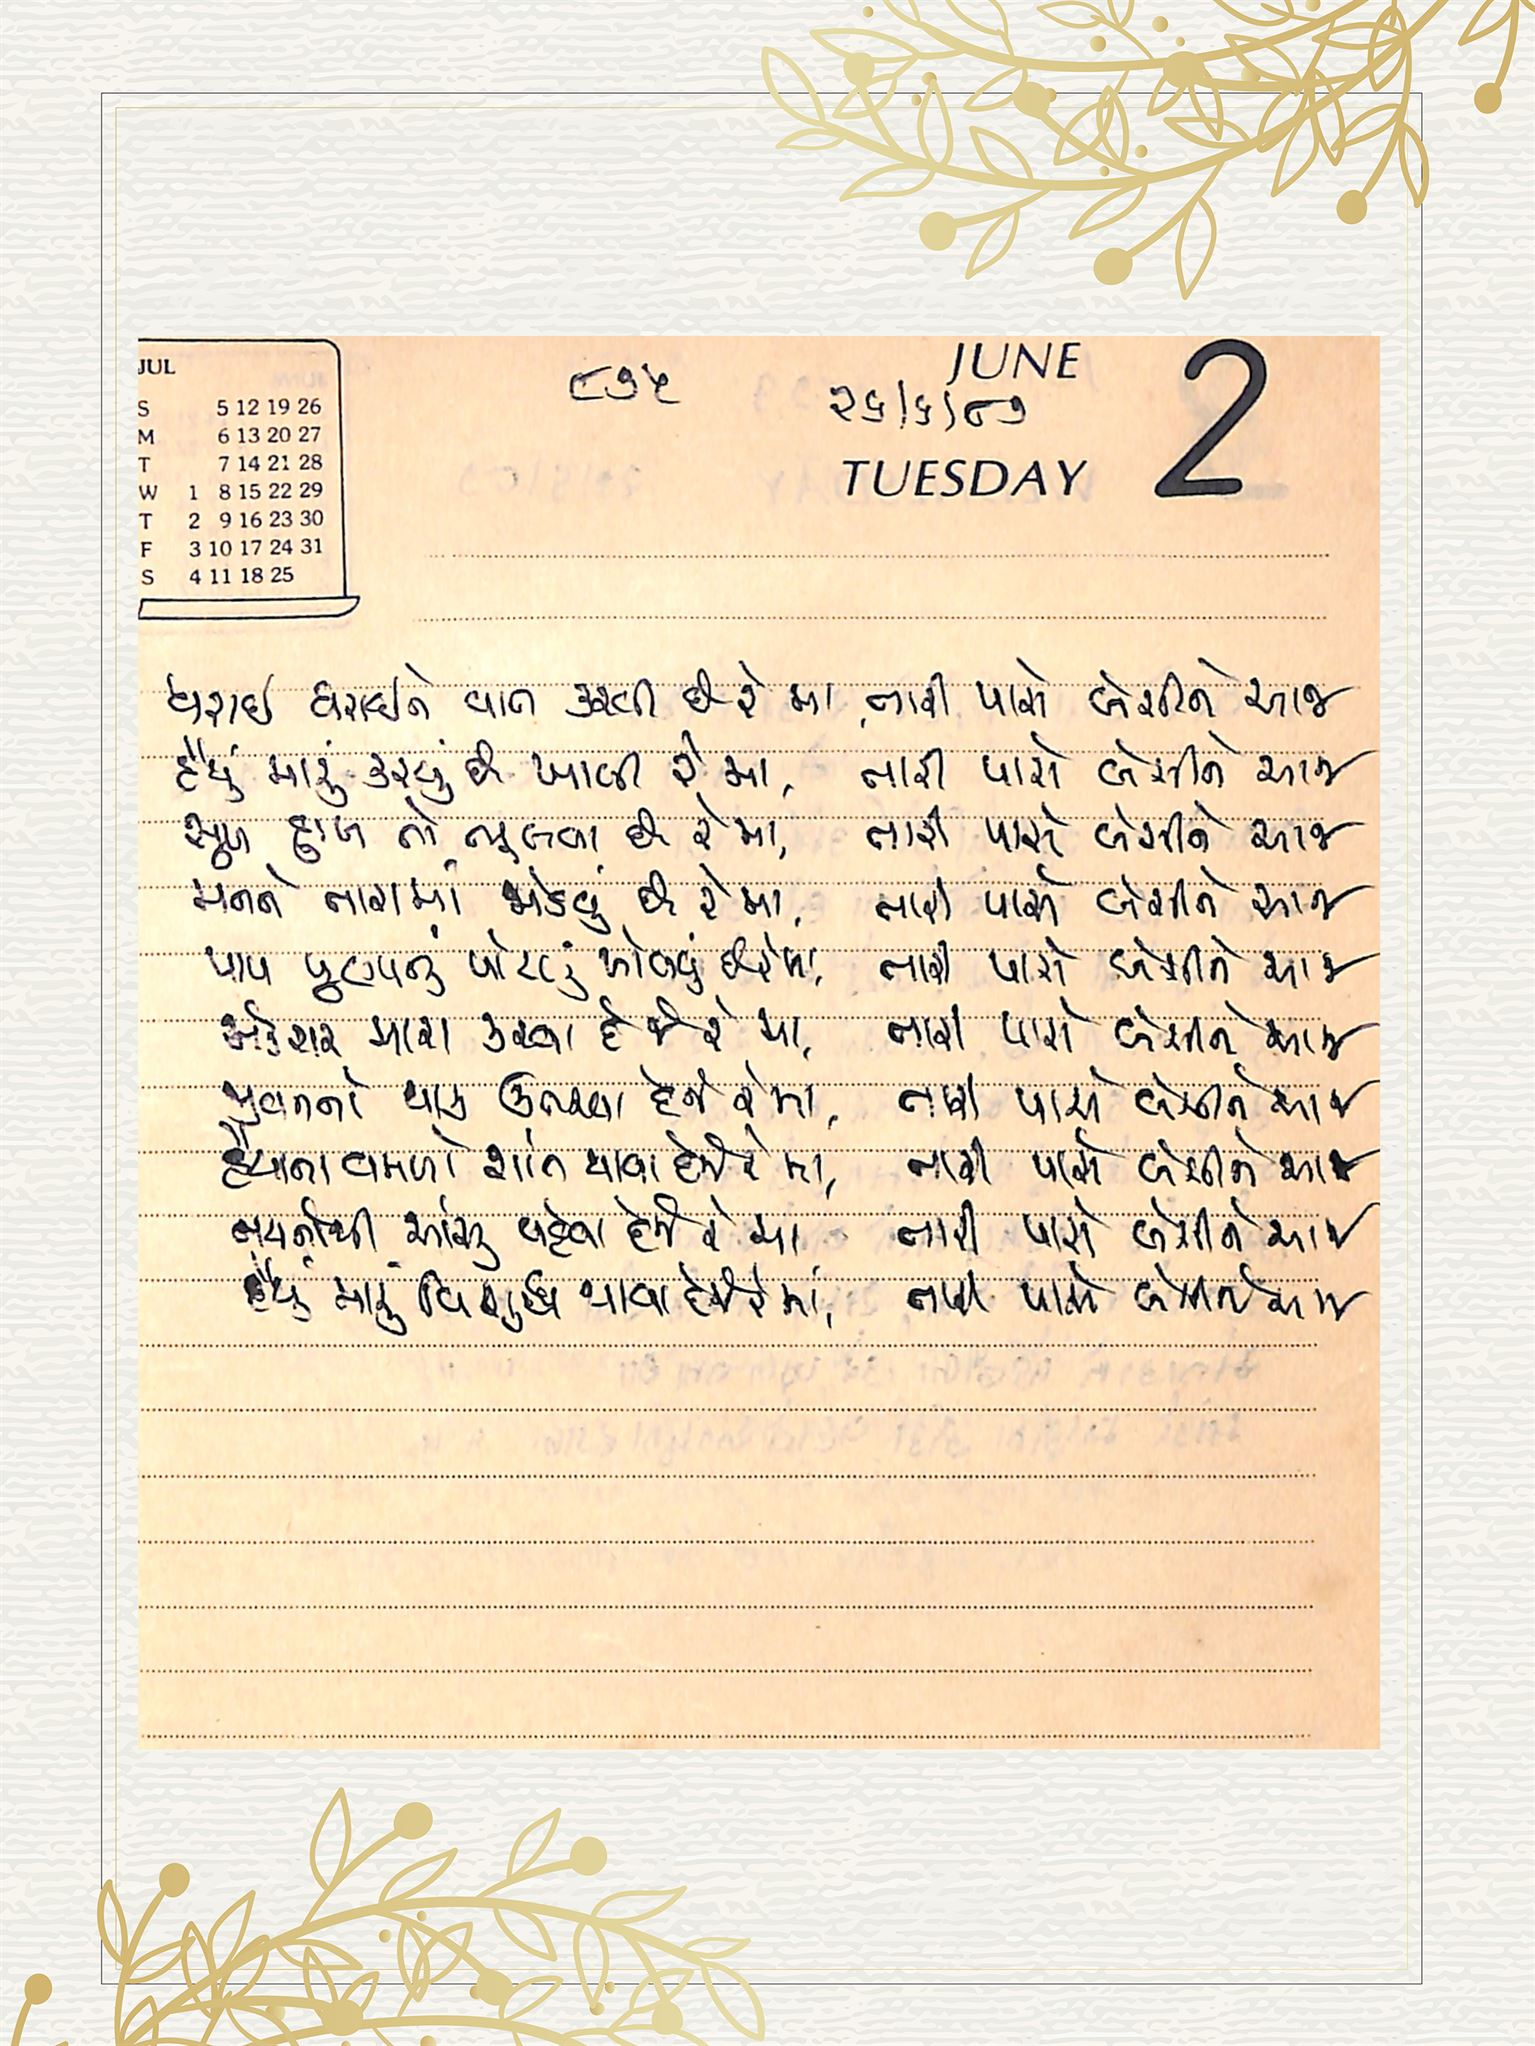 JUL
S 5 12 19 26
M 6 13 20 27
T 7 14 21 28
W 1 8 15 22 29
T 2 9 16 23 30
F 3 10 17 24 31
S 4 11 18 25
૮૭૫
JUNE 2
૨૬/૬/૮૭
TUESDAY
ધરાઈ ધરાઈને વાત કરવી છે રે મા, તારી પાસે બેસીને આજ
હૈયું મારું કરવું છે ખાલી રે મા, તારી પાસે બેસીને આજ
સુખ દુઃખ તો ભૂલવા છે રે મા, તારી પાસે બેસીને આજ
મનને તારામાં જોડવું છે રે મા, તારી પાસે બેસીને આજ
પાપ પુણ્યનું પોટલું ખોલવું છે રે મા, તારી પાસે બેસીને આજ
મારા કરવા દેજે રે મા, તારી પાસે બેસીને આજ
જીવનનો થાક ઉતારવા દેજે રે મા, તારી પાસે બેસીને આજ
હૈયાના વમળો શાંત થાવા દેજે રે મા, તારી પાસે બેસીને આજ
નયનોથી આંસુ વહેવા દેજે રે મા તારી પાસે બેસીને આજ
હૈયું મારું વિશુદ્ધ થાવા દેજે રે મા, તારી પાસે બેસીને આજ